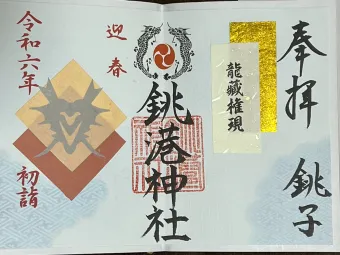 奉拝
銚子
龍蔵権現
迎春
銚港神社
令和六年
初詣